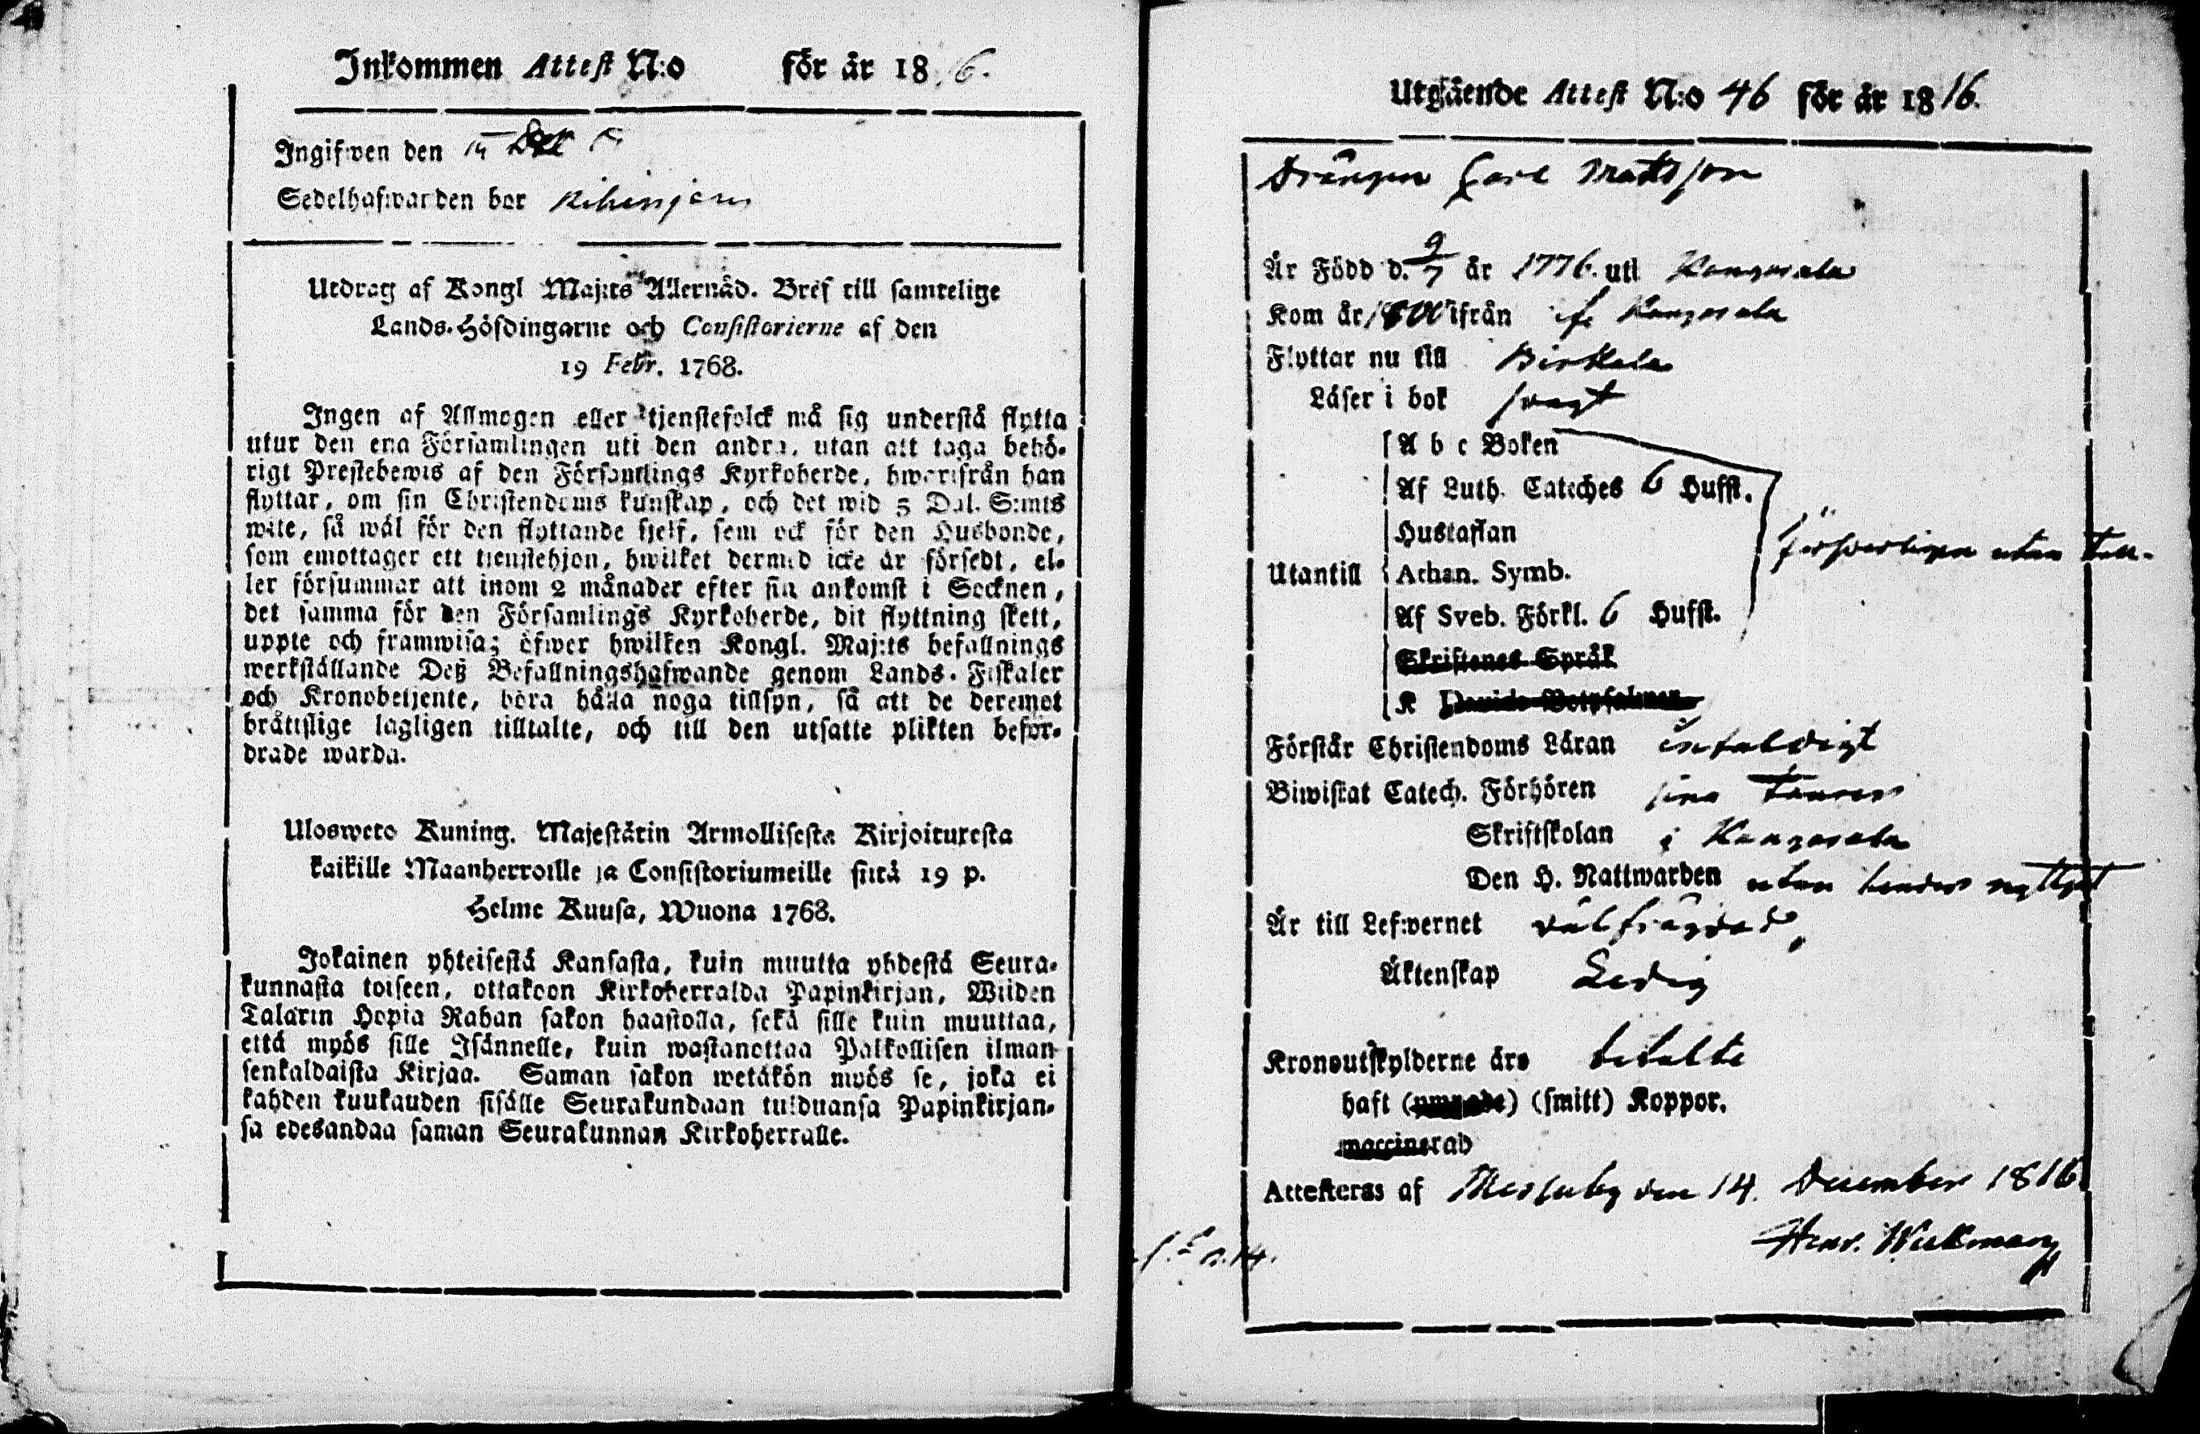 Inkommen Attest N:o för år 18 16.
Ingifwen den
Sedelhafwanden bor
Utdrag af Kongl Maj:ts Allernåd. Bref till samtelige
Lands-Höfdingarne och Consistorierne af den
19 Febr. 1768.
Ingen af Allmogen eller tjenstefolck må sig understå flytta
utur den ena Församlingen uti den andra, utan att taga behö-
rigt Prestebewis af den Församlings Kyrkoherde, hwarifrån han
flyttar, om sin Christendoms kunskap, och det wid 5 Dal. S:mts
wite, så wäl för den flyttande sjelf, som ock för den Husbonde,
som emottager ett tjenstehjon, hwilket dermed icke är försedt, el-
ler försummar att inom 2 månader efter sin ankomst i Socknen,
det samma för den Församlings Kyrkoherde, dit flyttning skett,
uppte och framwisa; öfwer hwilken Kongl. Maj:ts befallnings
werkställande Deß Befallningshafwande genom Lands-Fiskaler
och Kronobetjente, böra hålla noga tillsyn, så att de deremot
bråttslige lagligen tilltalte, och till den utsatte plikten beför-
drade warda.
Ulosweto Kuning. Majestätin Armollisesta Kirjoituxesta
kaikille Maanherroille ja Consistoriumeille siitä 19 p.
Helme Kuusa, Wuona 1768.
Jokainen yhteisestä Kansasta, kuin muutta yhdestä Seura-
kunnasta toiseen, ottakoon Kirkoherralda Papinkirjan, Wiiden
Talarin Hopia Rahan sakon haastolla, sekä sille kuin muuttaa,
että myös sille Isännelle, kuin wastanottaa Palkollisen ilman
senkaldaista Kirjaa. Saman sakon wetäkön myös se, joka ei
kahden kuukauden sisälle Seurakundaan tulduansa Papinkirjan-
sa edesandaa saman Seurakunnan Kirkoherralle.
Utgående Attest N:o 46 för år 18 16.
Drängen Carl Mattsson
Är Född d. 9/7 år 1776. uti Kangasala
Kom år 1800 ifrån Kangasala
Flyttar nu till Birkala
Läser i bok swagt
A b c Boken
Af Luth. Cateches 6 Hufst.
Hustaflan
Utantill Athan. Symb. utan
Af Sveb. Förkl. 6 Hufst.
Skriftenes Språk
K Davids Botpsalmer
Förstår Christendoms Läran enfaldigt
Biwistat Catech. Förhören sina
Skriftskolan i Kangasala
Den H. Nattwarden utan hinder nyttjat
Är till Lefwernet välfrägdad,
Äktenskap Ledig
Kronoutskylderne äro betalte
haft (ympade) (smitt) Koppor.
waccinerad
Attesteras af Messuby den 14. December 1816
Henr. Wickman